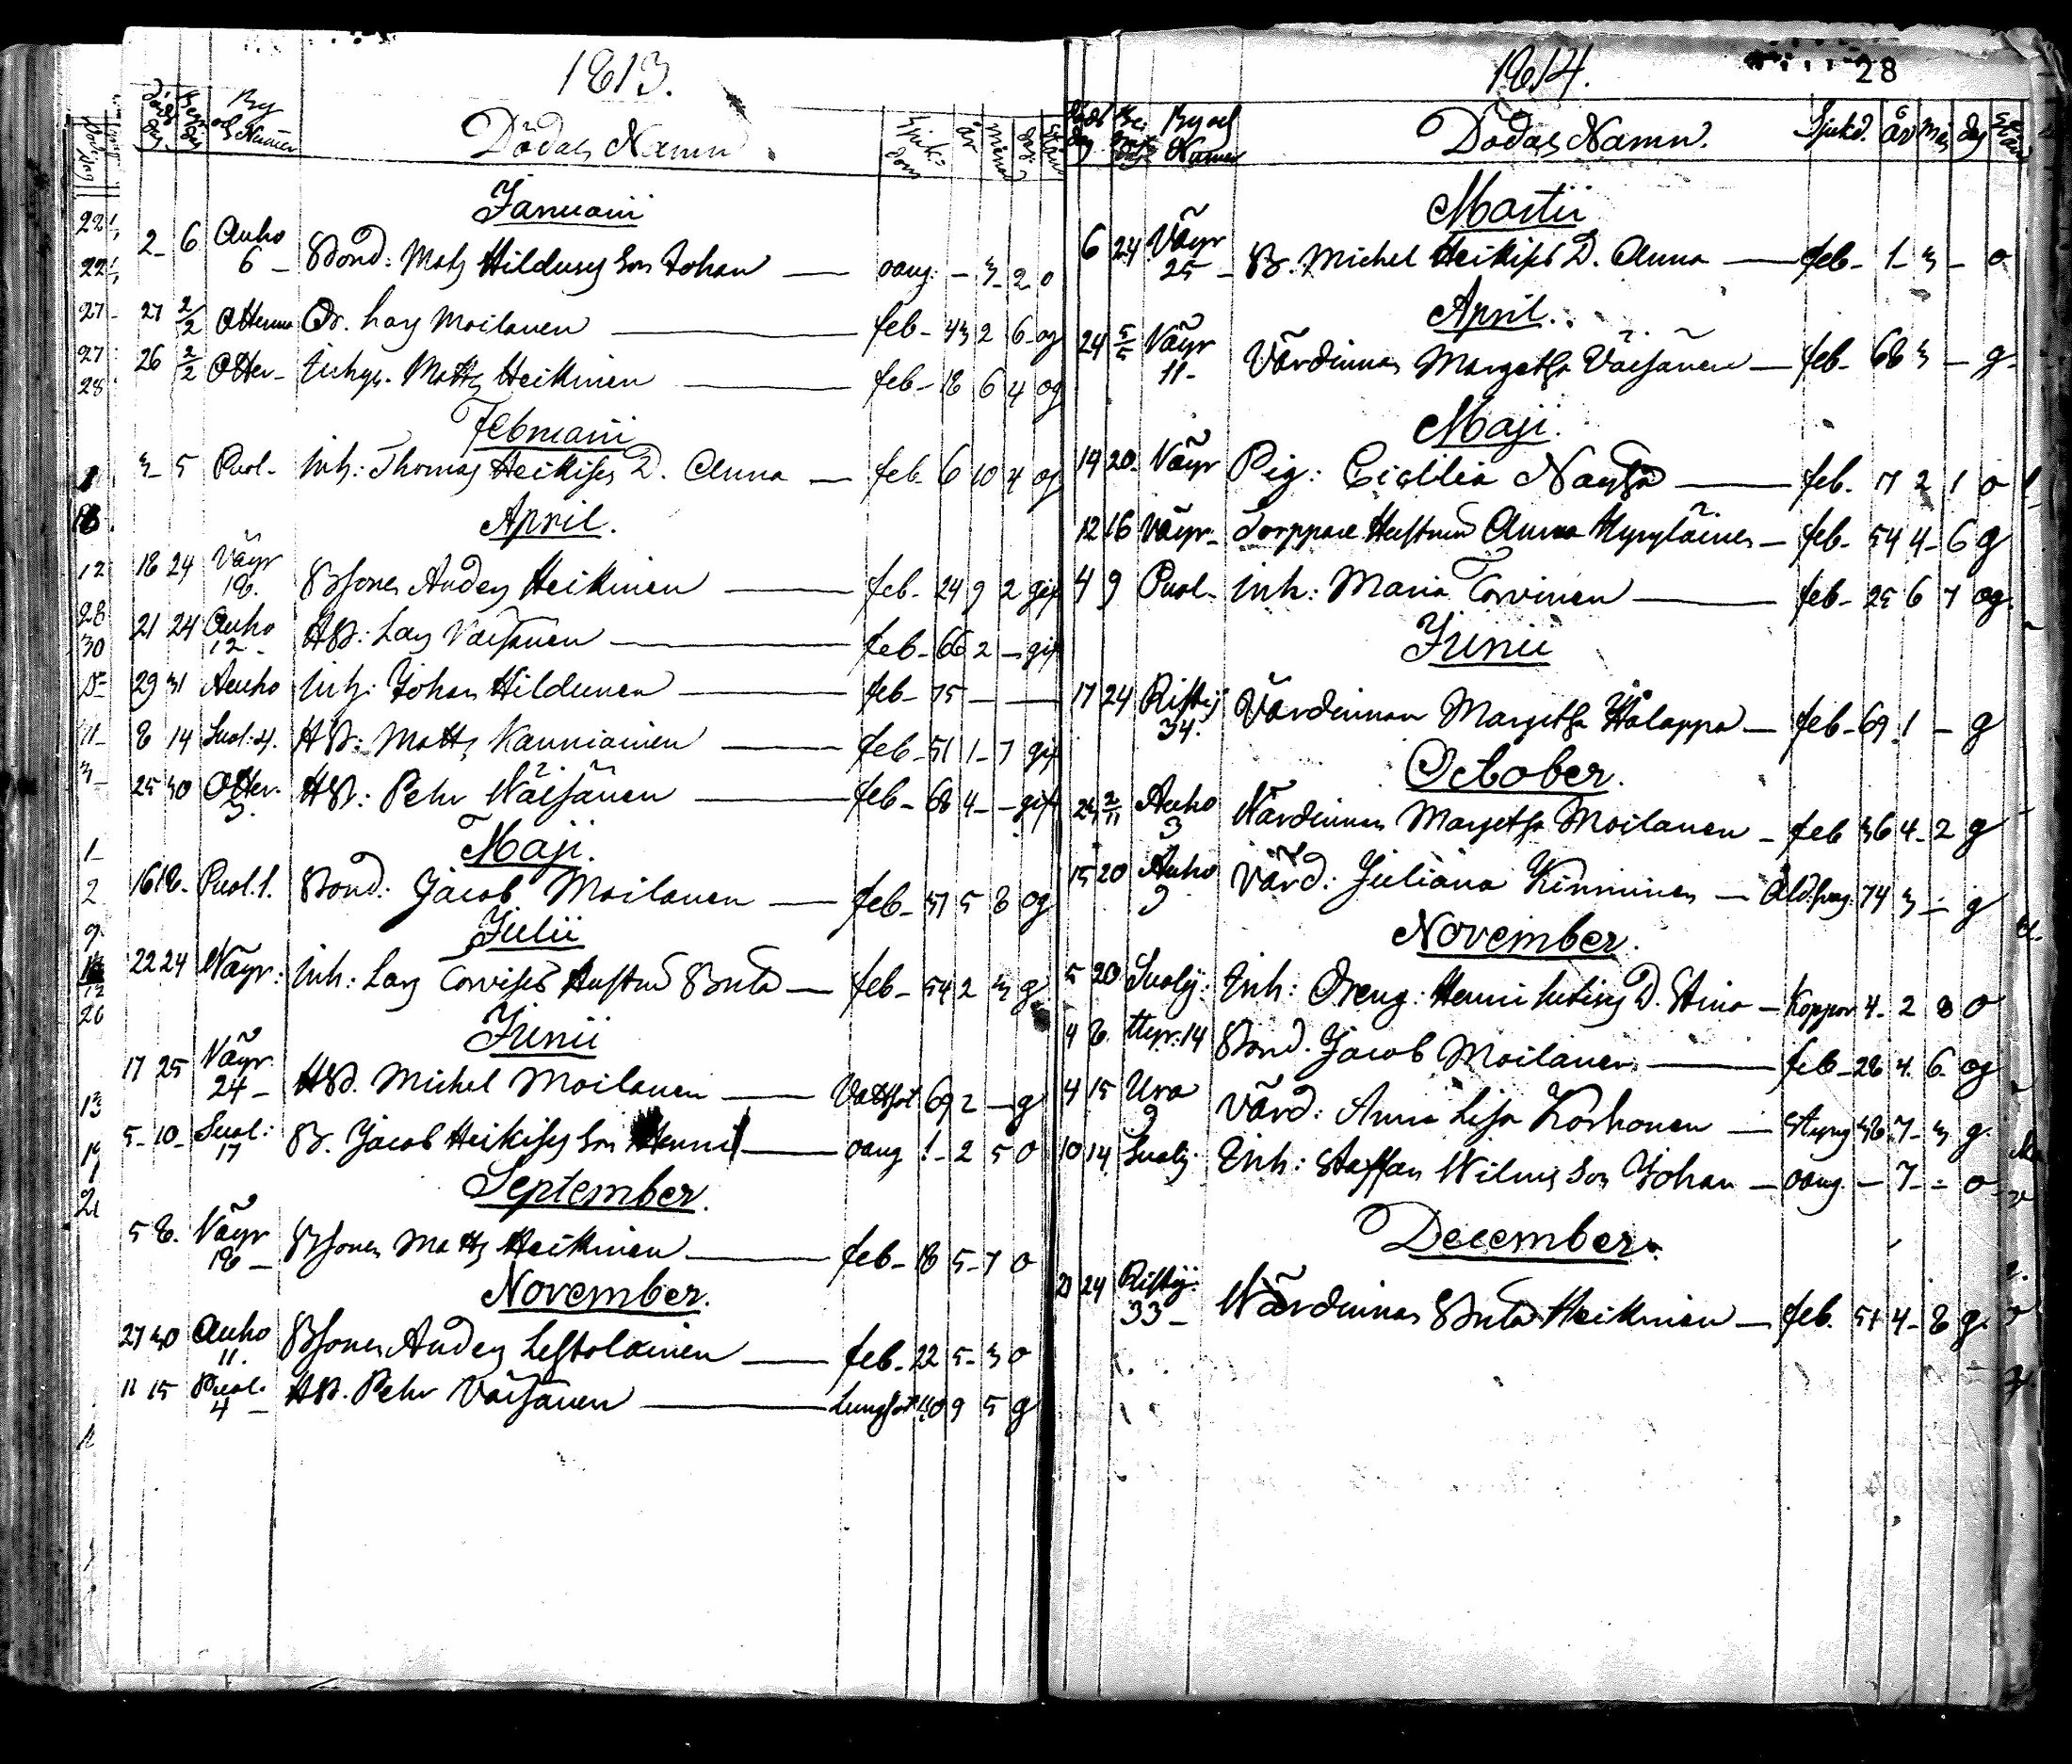 1813.
Döds dag
Begr dag
By och Numer
Dödas Namn
Sjukdom
år
Månad
dag
Stånd
Januarii
2 6 Auho 6 Bond: Matz Hilduses Son Johan oang: - 3 2 o
27 2/2 Otterma Dr. Lars Moilanen feb- 43 2 6 og
26 2/2 Otter- Matts Heikinen feb- 18 6 4 og
Februarii
3 5 Puol- Inh: Thomas Heikises D. Anna feb- 6 10 4 og
April.
18 24 Väyr 18. Bsonen Anders Heikinen feb- 24 9 2 gif
21 24 Auho 12- HB: Lars Väisänen feb- 66 2 - gif
29 31 Auho Inh: Johan Hildunen feb- 75 - -
8 14 Suol: 4. HB: Matts Kanniainen feb- 51 1- 7 gif
25 30 Otter- 3. HB: Pehr Wäisänen feb- 68 4- - gif
Maji.
16 18- Puol. 1. Bond: Jacob Moilanen feb- 37 5 8 og
Julii
22 24 Wäyr: Inh: Lars Corvises Hustru Brita feb- 54 2 3 g
Junii
17 25 Väyr 24- HB. Michel Moilanen Vattsot 69 2 - g
5- 10- Suol: 17 B. Jacob Heikises Son Henric oang 1- 2 5 o
September.
5 8. Väyr 18- Bsonen Matts Heikinen feb- 18 5- 7 o
November.
27 30 Auho 11. Bsonen Anders Lestolainen feb- 22 5- 3 o
11 15 Puol- 4- HB. Pehr Väisänen Lungsot 40 9 5 g
1814. 28
Döds dag
Begr dag
By och Numer
Dödas Namn.
Sjukd.
år
Mån
dag
Stånd
Martii
6 24 Väyr 25- B. Michel Heikises D. Anna feb- 1- 3 - o
April.
24 5/5 Väyr 11- Värdinnan Margetha Väisänen feb- 68 3 - g-
Maji.
19 20- Väyr Pig: Cicilia feb- 17 2 1 o
12 16 Väyr- Torppare Hustrun Anna Hyryläinen feb- 54 4- 6 g
4 9 Puol- Inh: Maria Torvinen feb- 25 6 7 og
Junii
17 24 Ristij 34. Värdinnan Margetha Halappa feb- 69 1 - g
October.
23 2/11 Auho 3 Wärdinnan Margetha Moilanen feb 36 4- 2 g
15 20 Auho 9 Värd: Juliana Kinnunen 74 3 - g
November.
5 20 Suolij: Inh: Dreng: Henric D. Stina Koppor 4- 2 8 o
4 8. Hyr: 14 Bond. Jacob Moilanen feb- 28 4. 6- og
4 15 Ura 9 Värd: Anna Lisa Korhonen Styng 38 7- 3 g.
10 14 Suolij- Inh: Staffan Wilmis Son Johan oang- - 7- - o
December.
21 24 Ristij- 33- Wärdinnan Brita Heikinen feb. 51 4- 8 g.